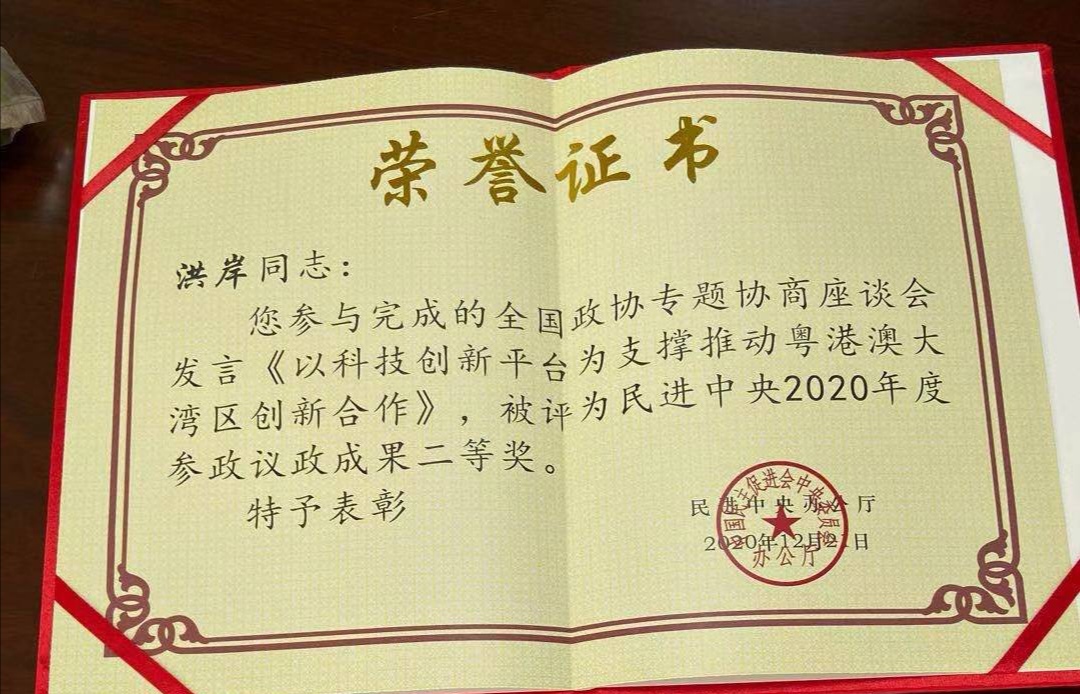 荣誉证书
洪岸同志：
您参与完成的全国政协专题协商座谈会
发言《以科技创新平台为支撑推动粤港澳大
湾区创新合作》，被评为民进中央2020年度
参政议政成果二等奖。
特予表彰
民进中央办公厅
2020年12月21日
中国民主促进会中央委员会
办公厅